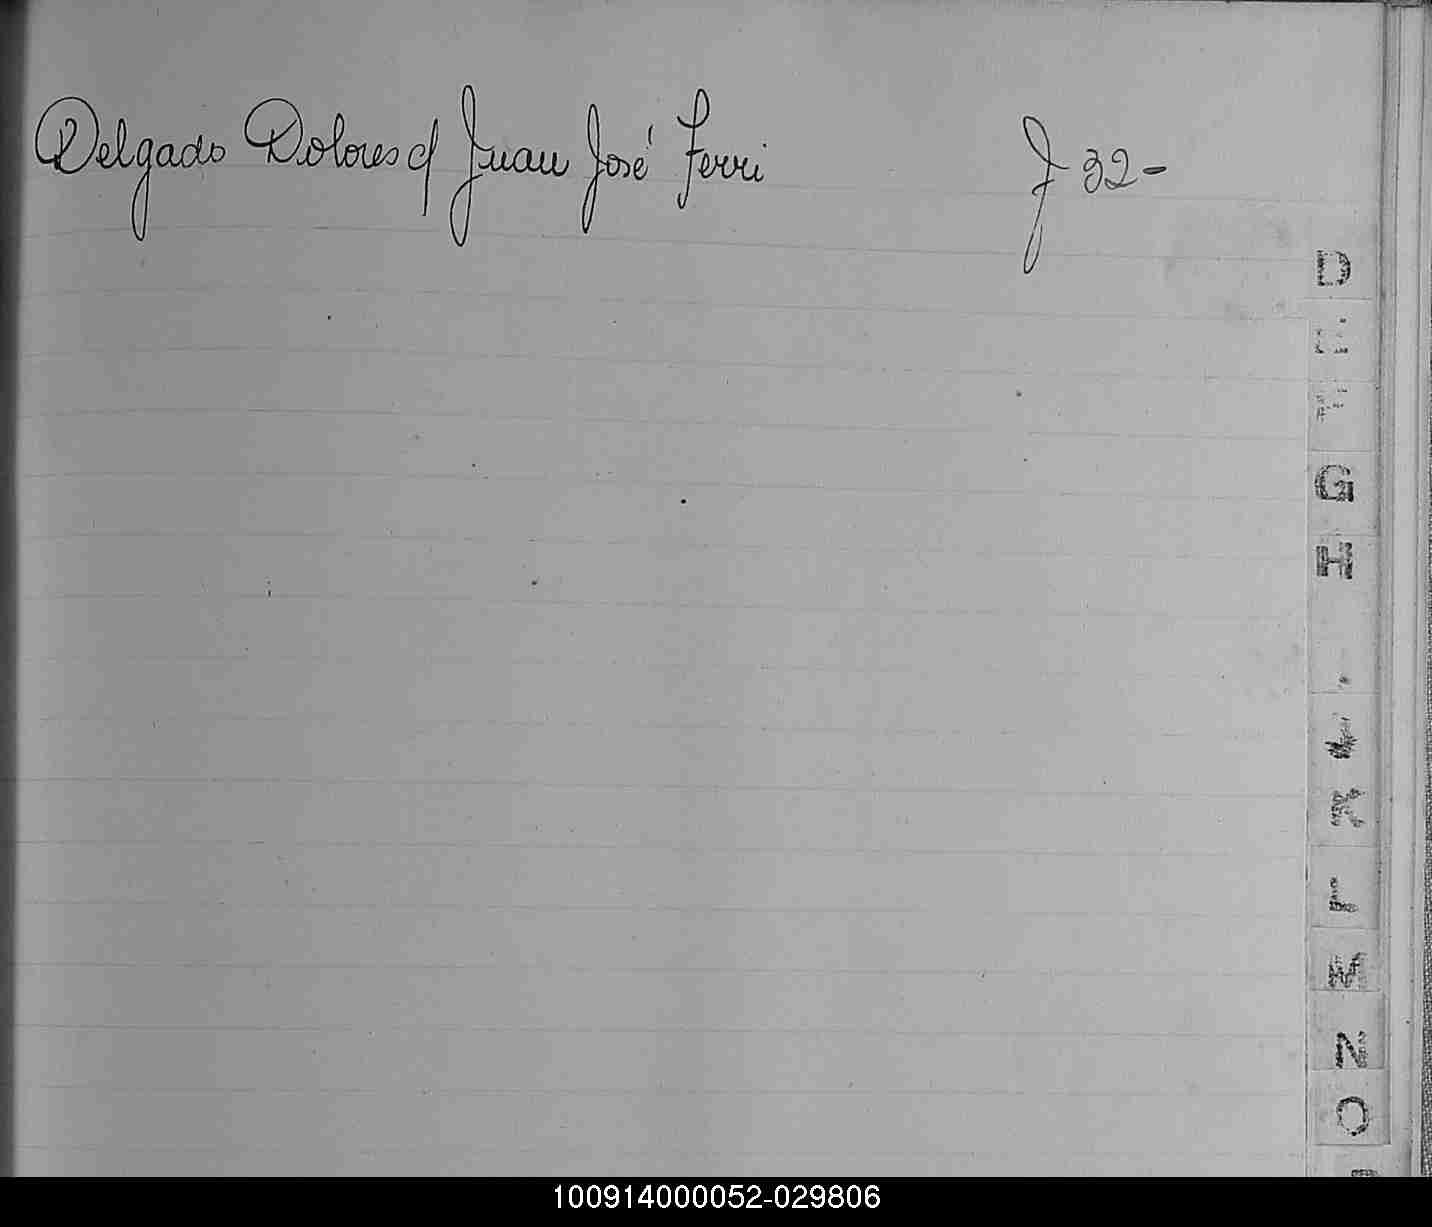 Delgado Dolores c/ Juan José Ferri F 32-
D
G
H
K
L
M
N
O
100914000052-029806